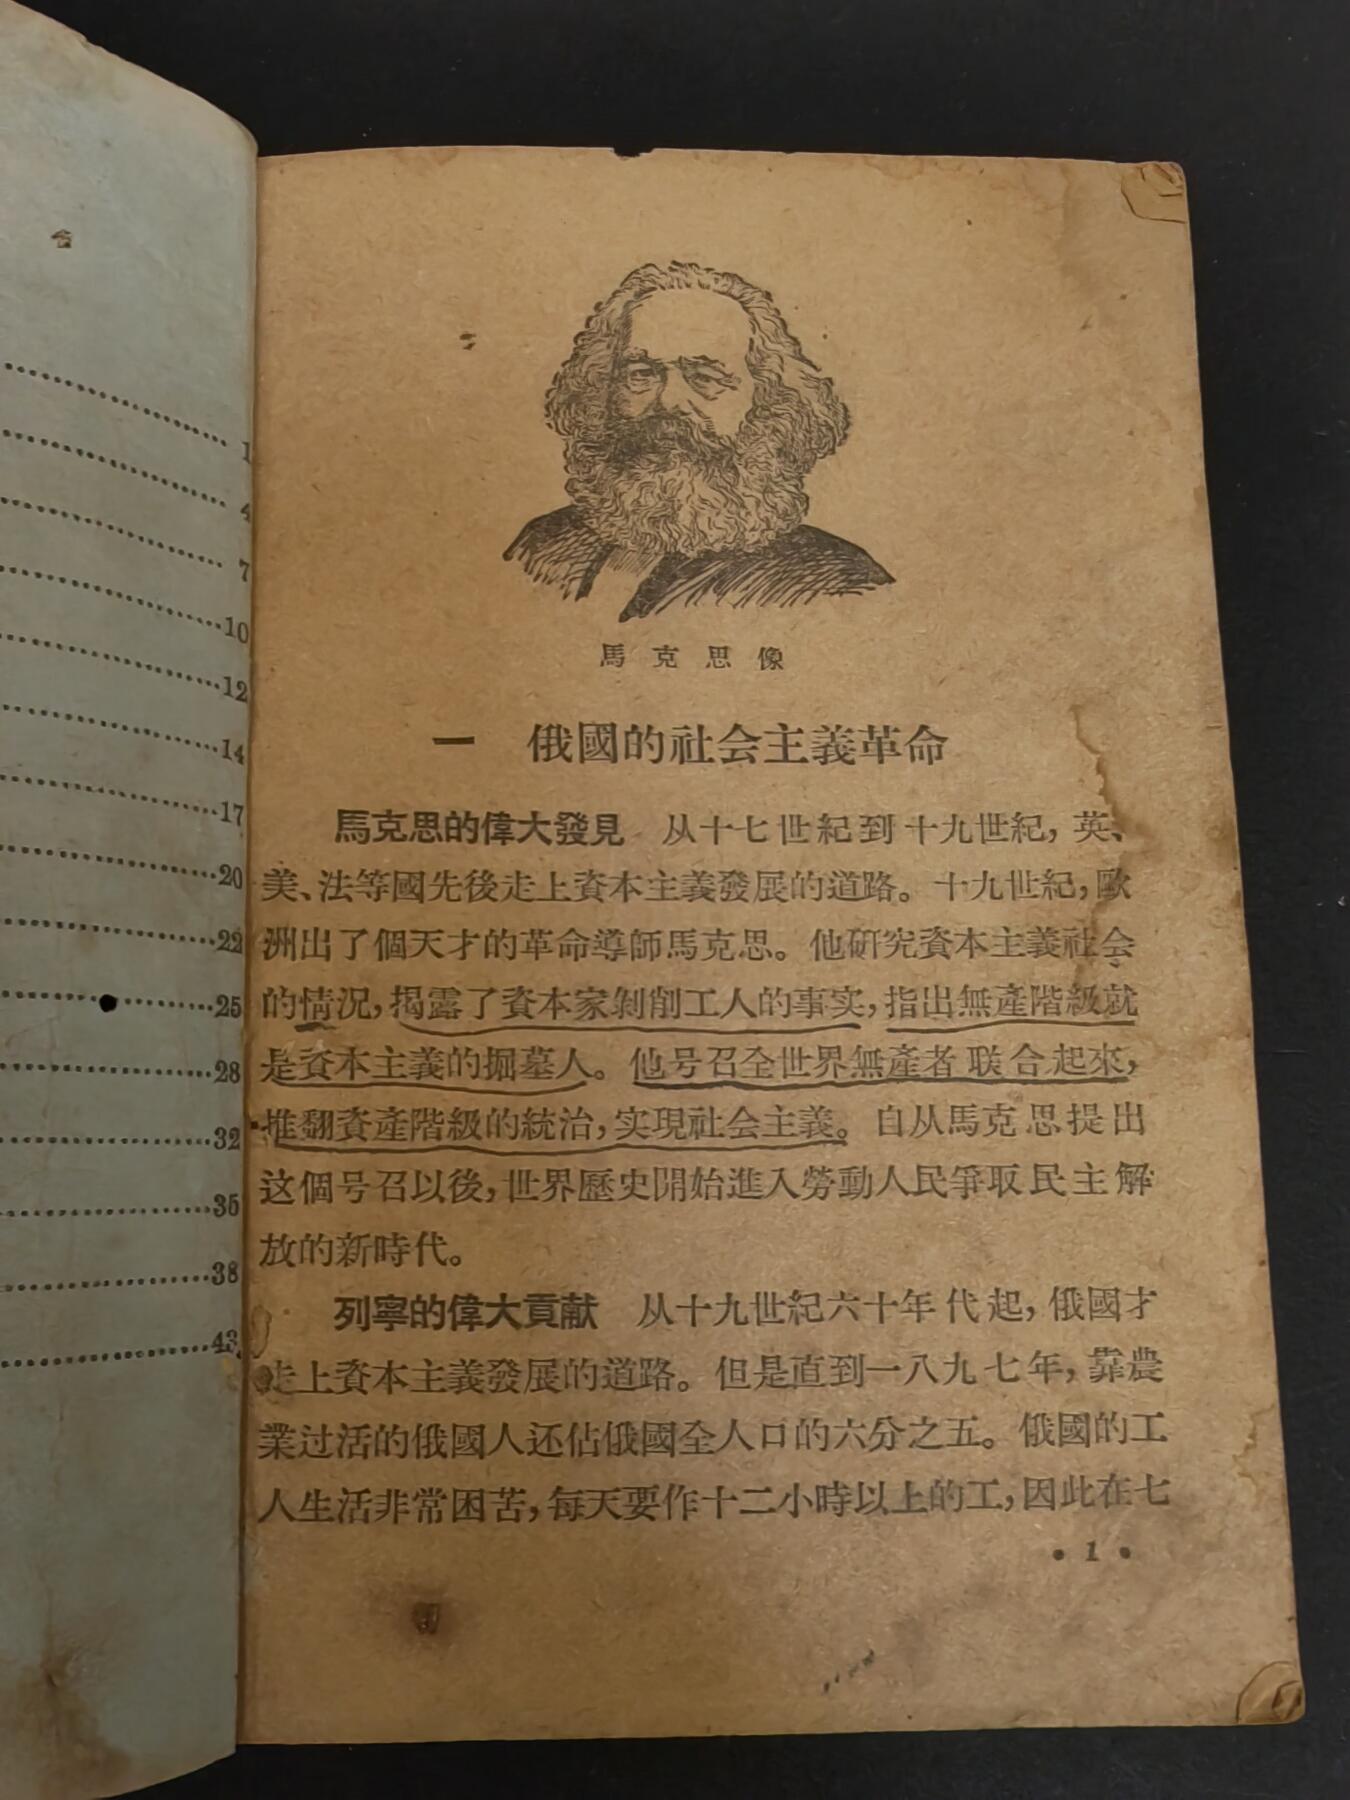 1
4
7
10
12
14
17
20
22
25
28
32
35
38
43
馬克思像
一 俄國的社会主義革命
馬克思的偉大發見 从十七世紀到十九世紀，英、
美、法等國先後走上資本主義發展的道路。十九世紀，歐
洲出了個天才的革命導師馬克思。他研究資本主義社会
的情況，揭露了資本家剝削工人的事实，指出無產階級就
是資本主義的掘墓人。他号召全世界無產者联合起來，
推翻資產階級的統治，实現社会主義。自从馬克思提出
这個号召以後，世界歷史開始進入勞動人民爭取民主解
放的新時代。
列寧的偉大貢献 从十九世紀六十年代起，俄國才
走上資本主義發展的道路。但是直到一八九七年，靠農
業过活的俄國人还佔俄國全人口的六分之五。俄國的工
人生活非常困苦，每天要作十二小時以上的工，因此在七
• 1 •